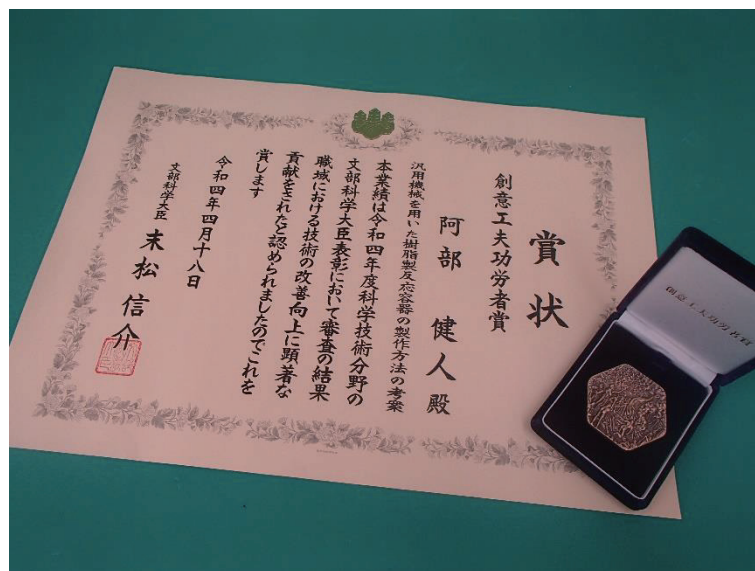 賞状
創意工夫功労者賞
阿部 健人 殿
汎用機械を用いた樹脂製反応容器の製作方法の考案
本業績は令和四年度科学技術分野の
文部科学大臣表彰において審査の結果
職域における技術の改善向上に顕著な
貢献をされたと認められましたのでこれを
賞します
令和四年四月十八日
文部科学大臣 末松 信介
創意工夫功労者賞